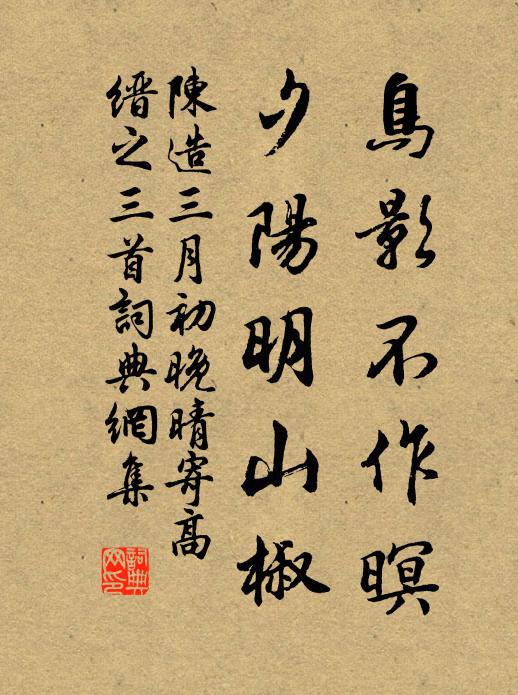 鳥影不作暝
夕陽明山椒
陳造三月初晚晴寄高
缙之三首詞典網集
詞典網印